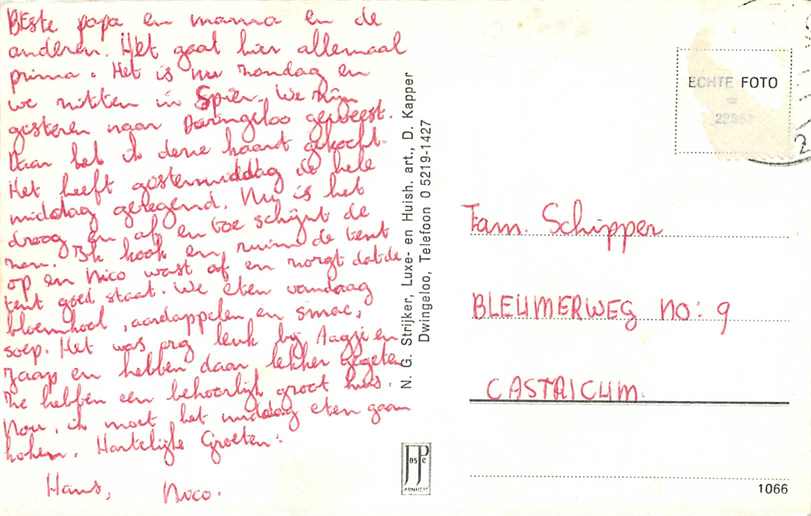 Beste papa en mama en de
anderen. Het gaat hier allemaal
prima. Het is nu zondag en
we zitten in Spier. We zijn
gisteren naar Dwingeloo geweest.
Daar heb ik deze kaart gekocht.
Het heeft gistermiddag de hele
middag geregend. Nu is het
droog en af en toe schijnt de
zon. Ik kook en ruim de tent
op en Nico wast af en zorgt dat de
tent goed staat. We eten vandaag
bloemkool, aardappelen en
soep. Het was erg leuk bij Aagje en
Jaap en hebben daar lekker gegeten
Ze hebben een behoorlijk groot huis.
Nou, ik moet het middag eten gaan
koken. Hartelijke Groeten:
Hans, Nico.
N. G. Strijker, Luxe- en Huish. art., D. Kapper
Dwingeloo, Telefoon 0 5219-1427
JosPé
ARNHEM
ECHTE FOTO
Fam. Schipper
BLEUMERWEG no: 9
CASTRICUM.
1066